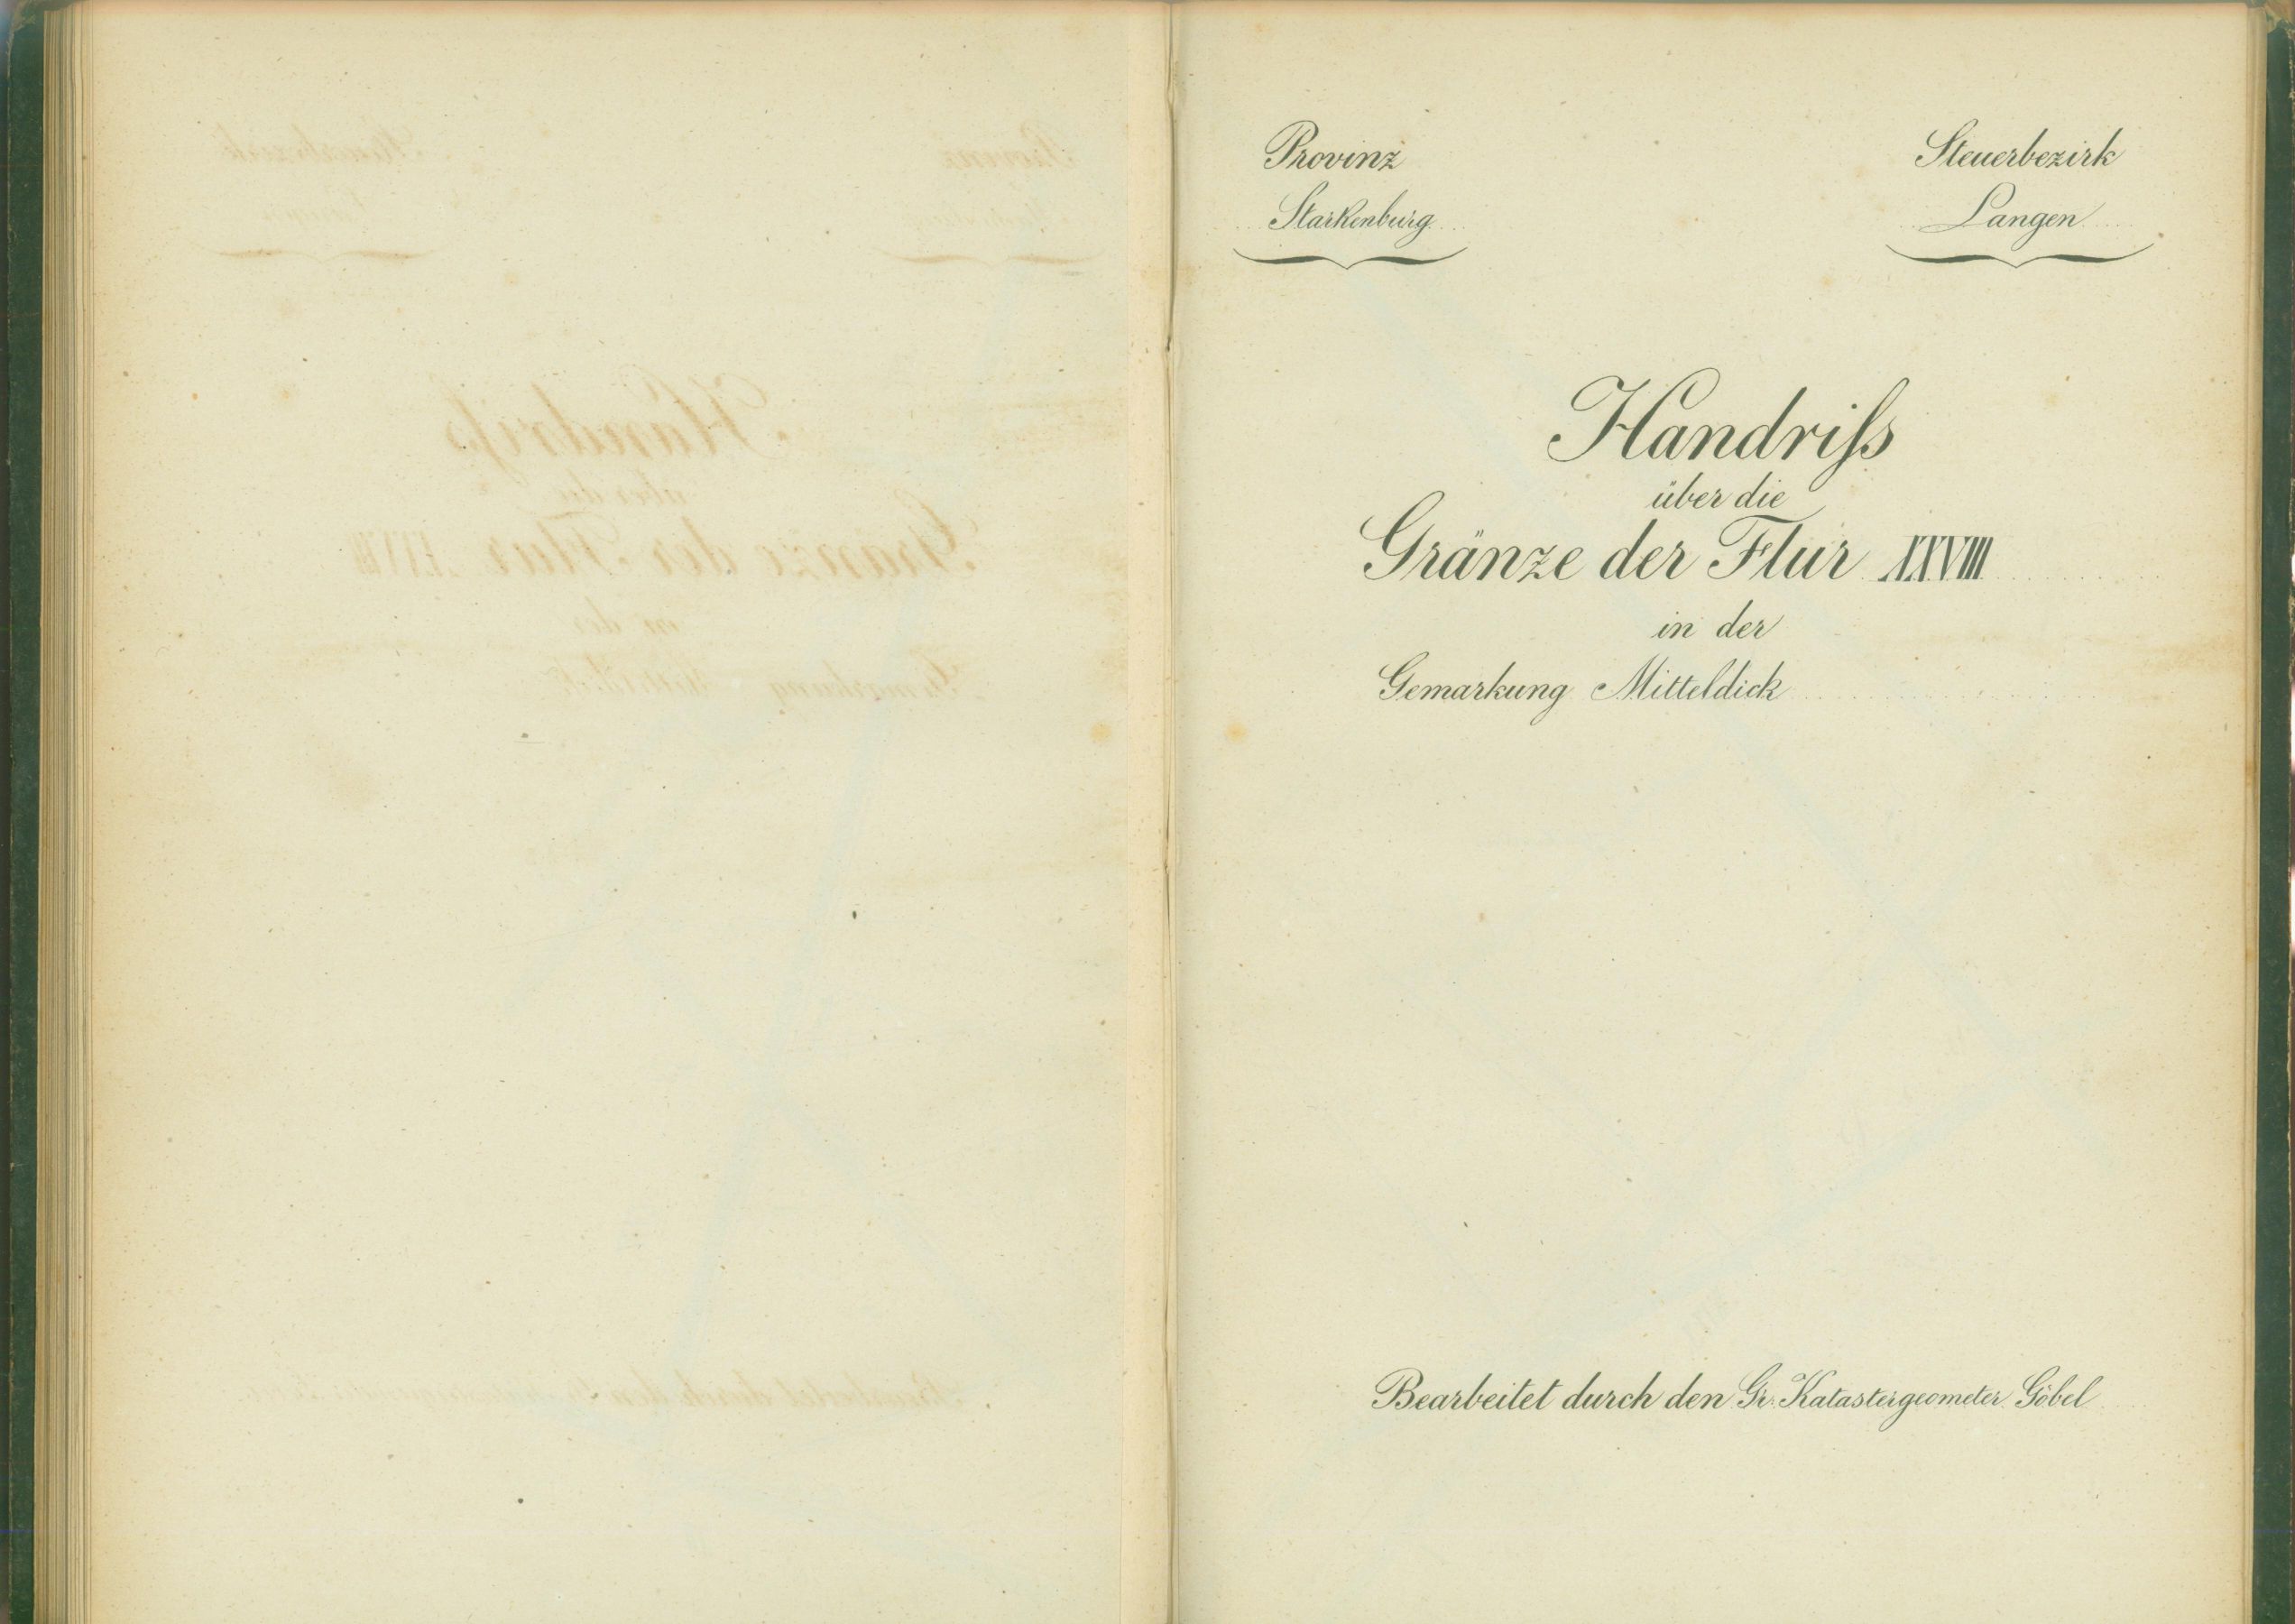 Provinz
Starkenburg
Steuerbezirk
Langen
Handriſs
über die
Gränze der Flur XXVIII
in der
Gemarkung Mitteldick
Bearbeitet durch den Gr. Katastergeometer Göbel